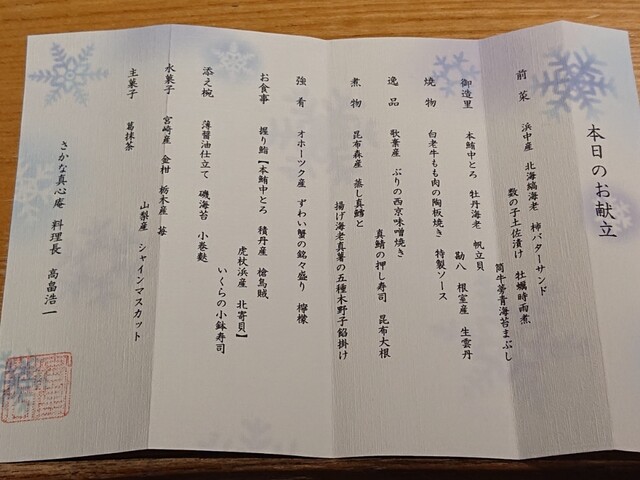 本日のお献立
前菜 浜中産 北海縞海老 柿バターサンド
数の子土佐漬け 牡蠣時雨煮
筒牛蒡青海苔まぶし
御造里 本鮪中とろ 牡丹海老 帆立貝
勘八 根室産 生雲丹
焼物 白老牛もも肉の陶板焼き 特製ソース
逸品 歌葉産 ぶりの西京味噌焼き
真鯖の押し寿司 昆布大根
煮物 昆布森産 蒸し真鱈と
揚げ海老真薯の五種木野子餡掛け
強肴 オホーツク産 ずわい蟹の銘々盛り 檸檬
お食事 握り鮨【本鮪中とろ 積丹産 槍烏賊
虎杖浜産 北寄貝】
いくらの小鉢寿司
添え椀 薄醤油仕立て 磯海苔 小巻麩
水菓子 宮崎産 金柑 栃木産 苺
山梨産 シャインマスカット
主菓子 葛抹茶
さかな真心庵 料理長 高畠浩一